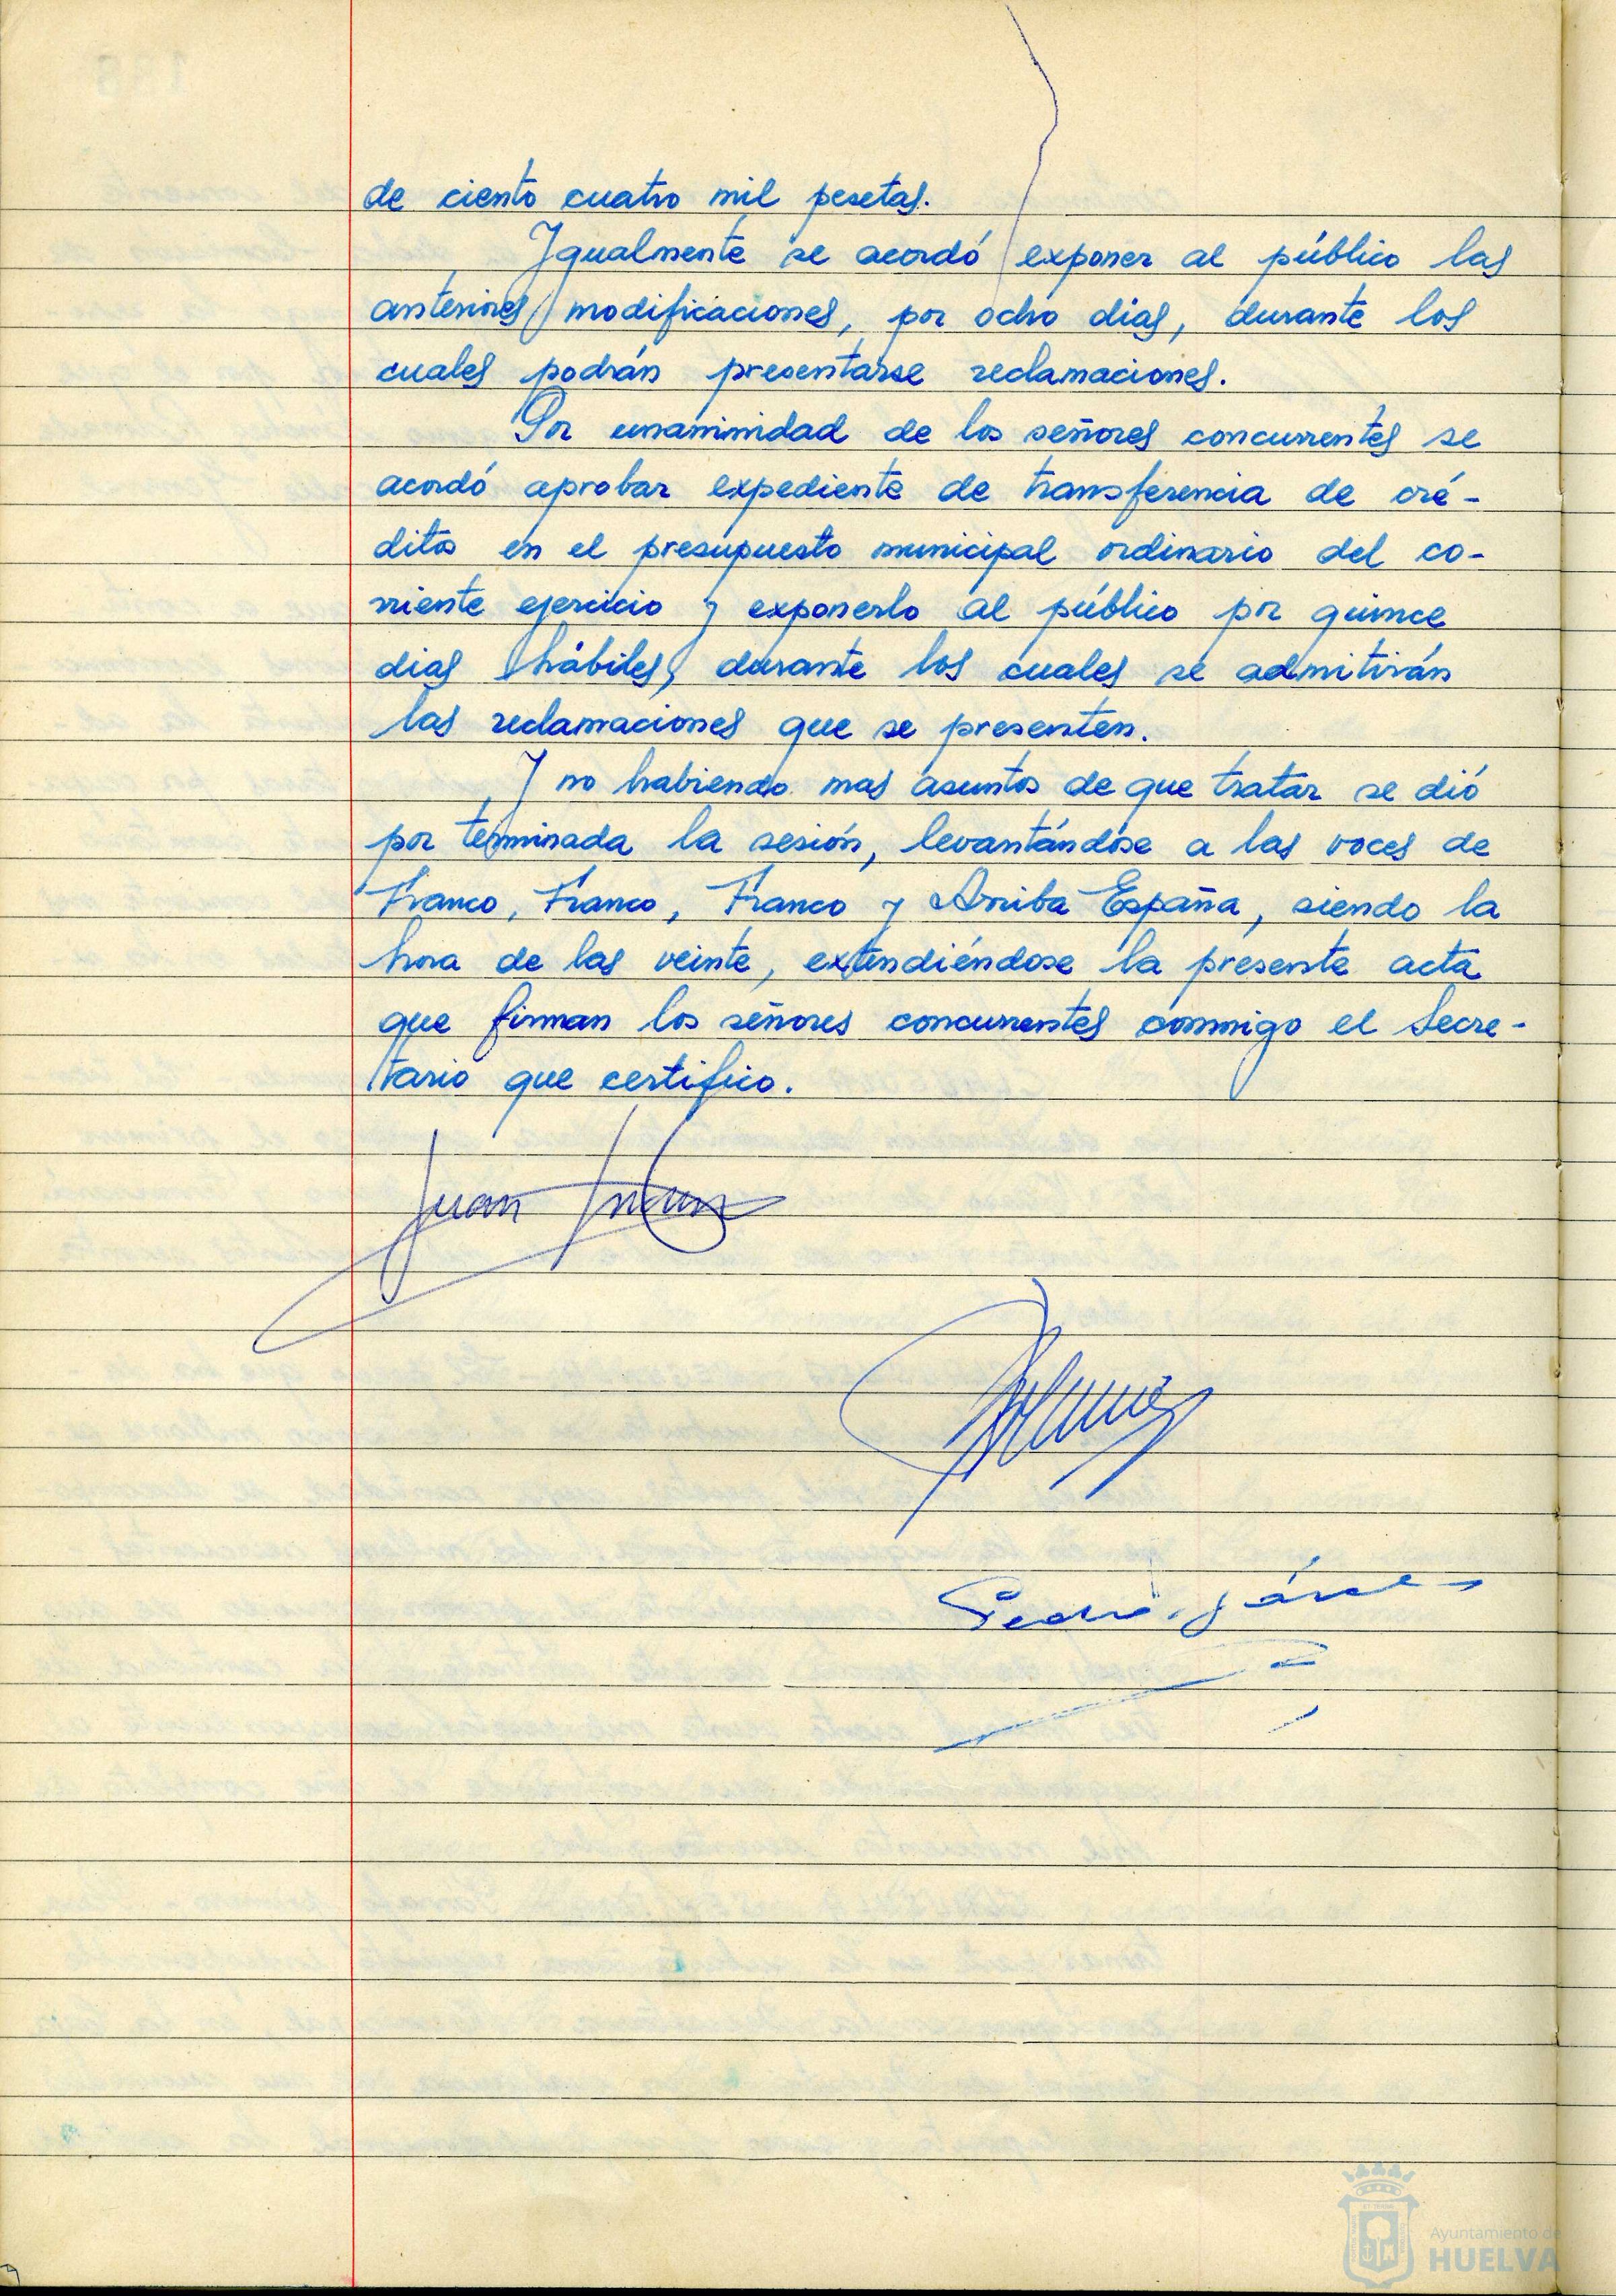 de ciento cuatro mil pesetas.
Igualmente se acordó exponer al público las
anteriores modificaciones, por ocho dias, durante los
cuales podrán presentarse reclamaciones.
Por unanimidad de los señores concurrentes se
acordó aprobar expediente de transferencia de cré-
dito en el presupuesto municipal ordinario del co-
rriente ejercicio y exponerlo al público por quince
dias hábiles, durante los cuales se admitirán
las reclamaciones que se presenten.
Y no habiendo mas asuntos de que tratar se dió
por terminada la sesión, levantándose a las voces de
Franco, Franco, Franco y Arriba España, siendo la
hora de las veinte, extendiéndose la presente acta
que firman los señores concurrentes conmigo el Secre-
tario que certifico.
Juan
Pedro
Ayuntamiento de
HUELVA